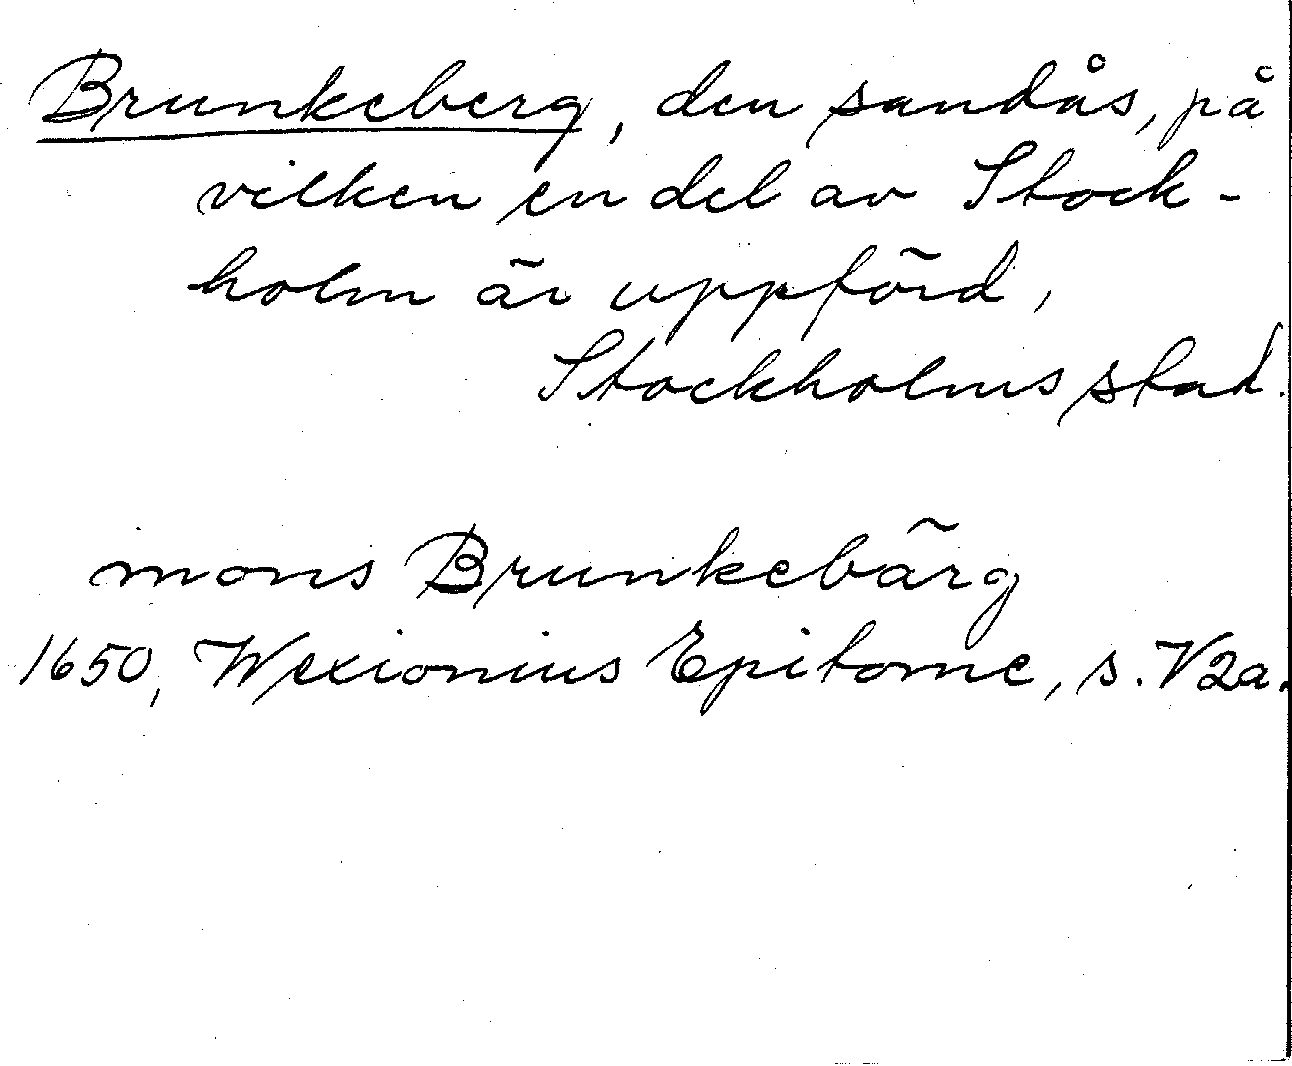 Brunkeberg, den sandås, på
vilken en del av Stock-
holm är uppförd,
Stockholms stad.
mons Brunkebärg
1650, Wexionius Epitome, s. V2a.